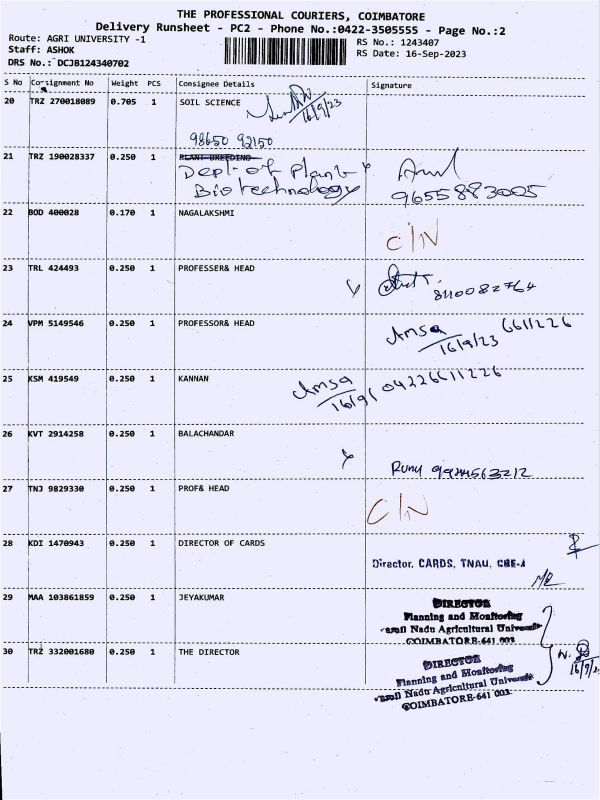 THE PROFESSIONAL COURIERS, COIMBATORE
Delivery Runsheet - PC2 - Phone No.:0422-3505555 - Page No.:2
Route: AGRI UNIVERSITY -1
Staff: ASHOK
DRS No.: DCJB124340702
RS No.: 1243407
RS Date: 16-Sep-2023
S No Consignment No Weight PCS Consignee Details Signature
20 TRZ 270018089 0.705 1 SOIL SCIENCE
16/9/23
98650 92150
21 TRZ 190028337 0.250 1 PLANT BREEDING
Dept of Plant
Biotechnology
9655883005
22 BOD 400028 0.170 1 NAGALAKSHMI
C/N
23 TRL 424493 0.250 1 PROFESSER& HEAD
8110082764
24 VPM 5149546 0.250 1 PROFESSOR& HEAD
Amsa 6611226
16/9/23
25 KSM 419549 0.250 1 KANNAN
Amsa 04226611226
16/9/
26 KVT 2914258 0.250 1 BALACHANDAR
27 TNJ 9829330 0.250 1 PROF& HEAD
C/N
28 KDI 1470943 0.250 1 DIRECTOR OF CARDS
Director, CARDS, TNAU, CBE-
29 MAA 103861859 0.250 1 JEYAKUMAR
DIRECTOR
Planning and Monitoring
Tamil Nadu Agricultural University
COIMBATORE-641 003
30 TRZ 332001680 0.250 1 THE DIRECTOR
DIRECTOR
Planning and Monitoring
Tamil Nadu Agricultural University
COIMBATORE-641 003